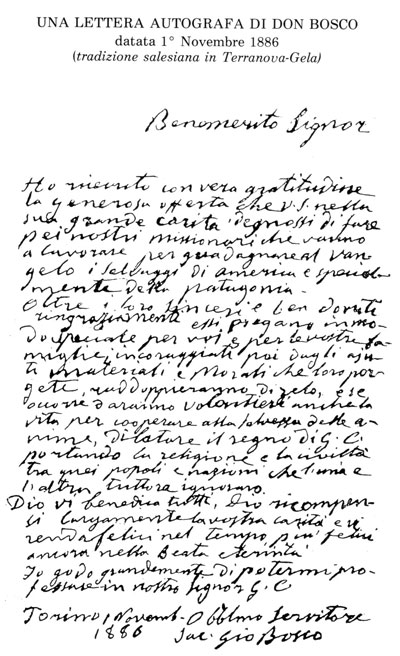 UNA LETTERA AUTOGRAFA DI DON BOSCO
datata 1° Novembre 1886
(tradizione salesiana in Terranova-Gela)
Benemerito Signor
Ho ricevuto con vera gratitudine
la generosa offerta che V. S. nella
sua grande carità degnossi di fare
pei nostri missionari che vanno
a lavorare per guadagnare al Van-
gelo i selvaggi di america e special-
mente della patagonia.
Oltre i loro sinceri e ben dovuti
ringraziamenti essi pregano in mo-
do speciale per voi e per le vostre fa-
miglie, incoraggiati poi dagli aju-
ti materiali e morali che loro por-
gete, raddoppieranno di zelo, e se
occorre daranno volontieri anche la
vita per cooperare alla salvezza delle a-
nime, dilatare il regno di G. C.
portando la religione e la civiltà
tra quei popoli e nazioni che l'una e
l'altra tuttora ignorano.
Dio vi benedica tutti, Dio ricompen-
si largamente la vostra carità e vi
renda felici nel tempo, più felici
ancora nella Beata eternità
Io godo grandemente di potermi pro-
fessare in nostro Signor G. C
Torino, 1 Novemb- Obblmo Servitore
1886 Sac. Gio Bosco